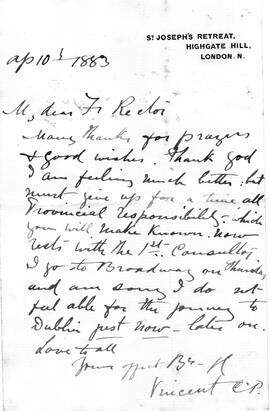 St JOSEPH'S RETREAT,
HIGHGATE HILL,
LONDON. N.
ap 10 1883
My dear Fr Rector
Many thanks for prayers
& good wishes. Thank God
I am feeling much better, but
must give up for a time all
Provincial responsibility - which
you will make known. now
rests with the 1st Consultor
I go to Broadway on Thursday
and am sorry I do not
feel able for the journey to
Dublin just now - later on.
Love to all
Yours affect
Vincent C.P.